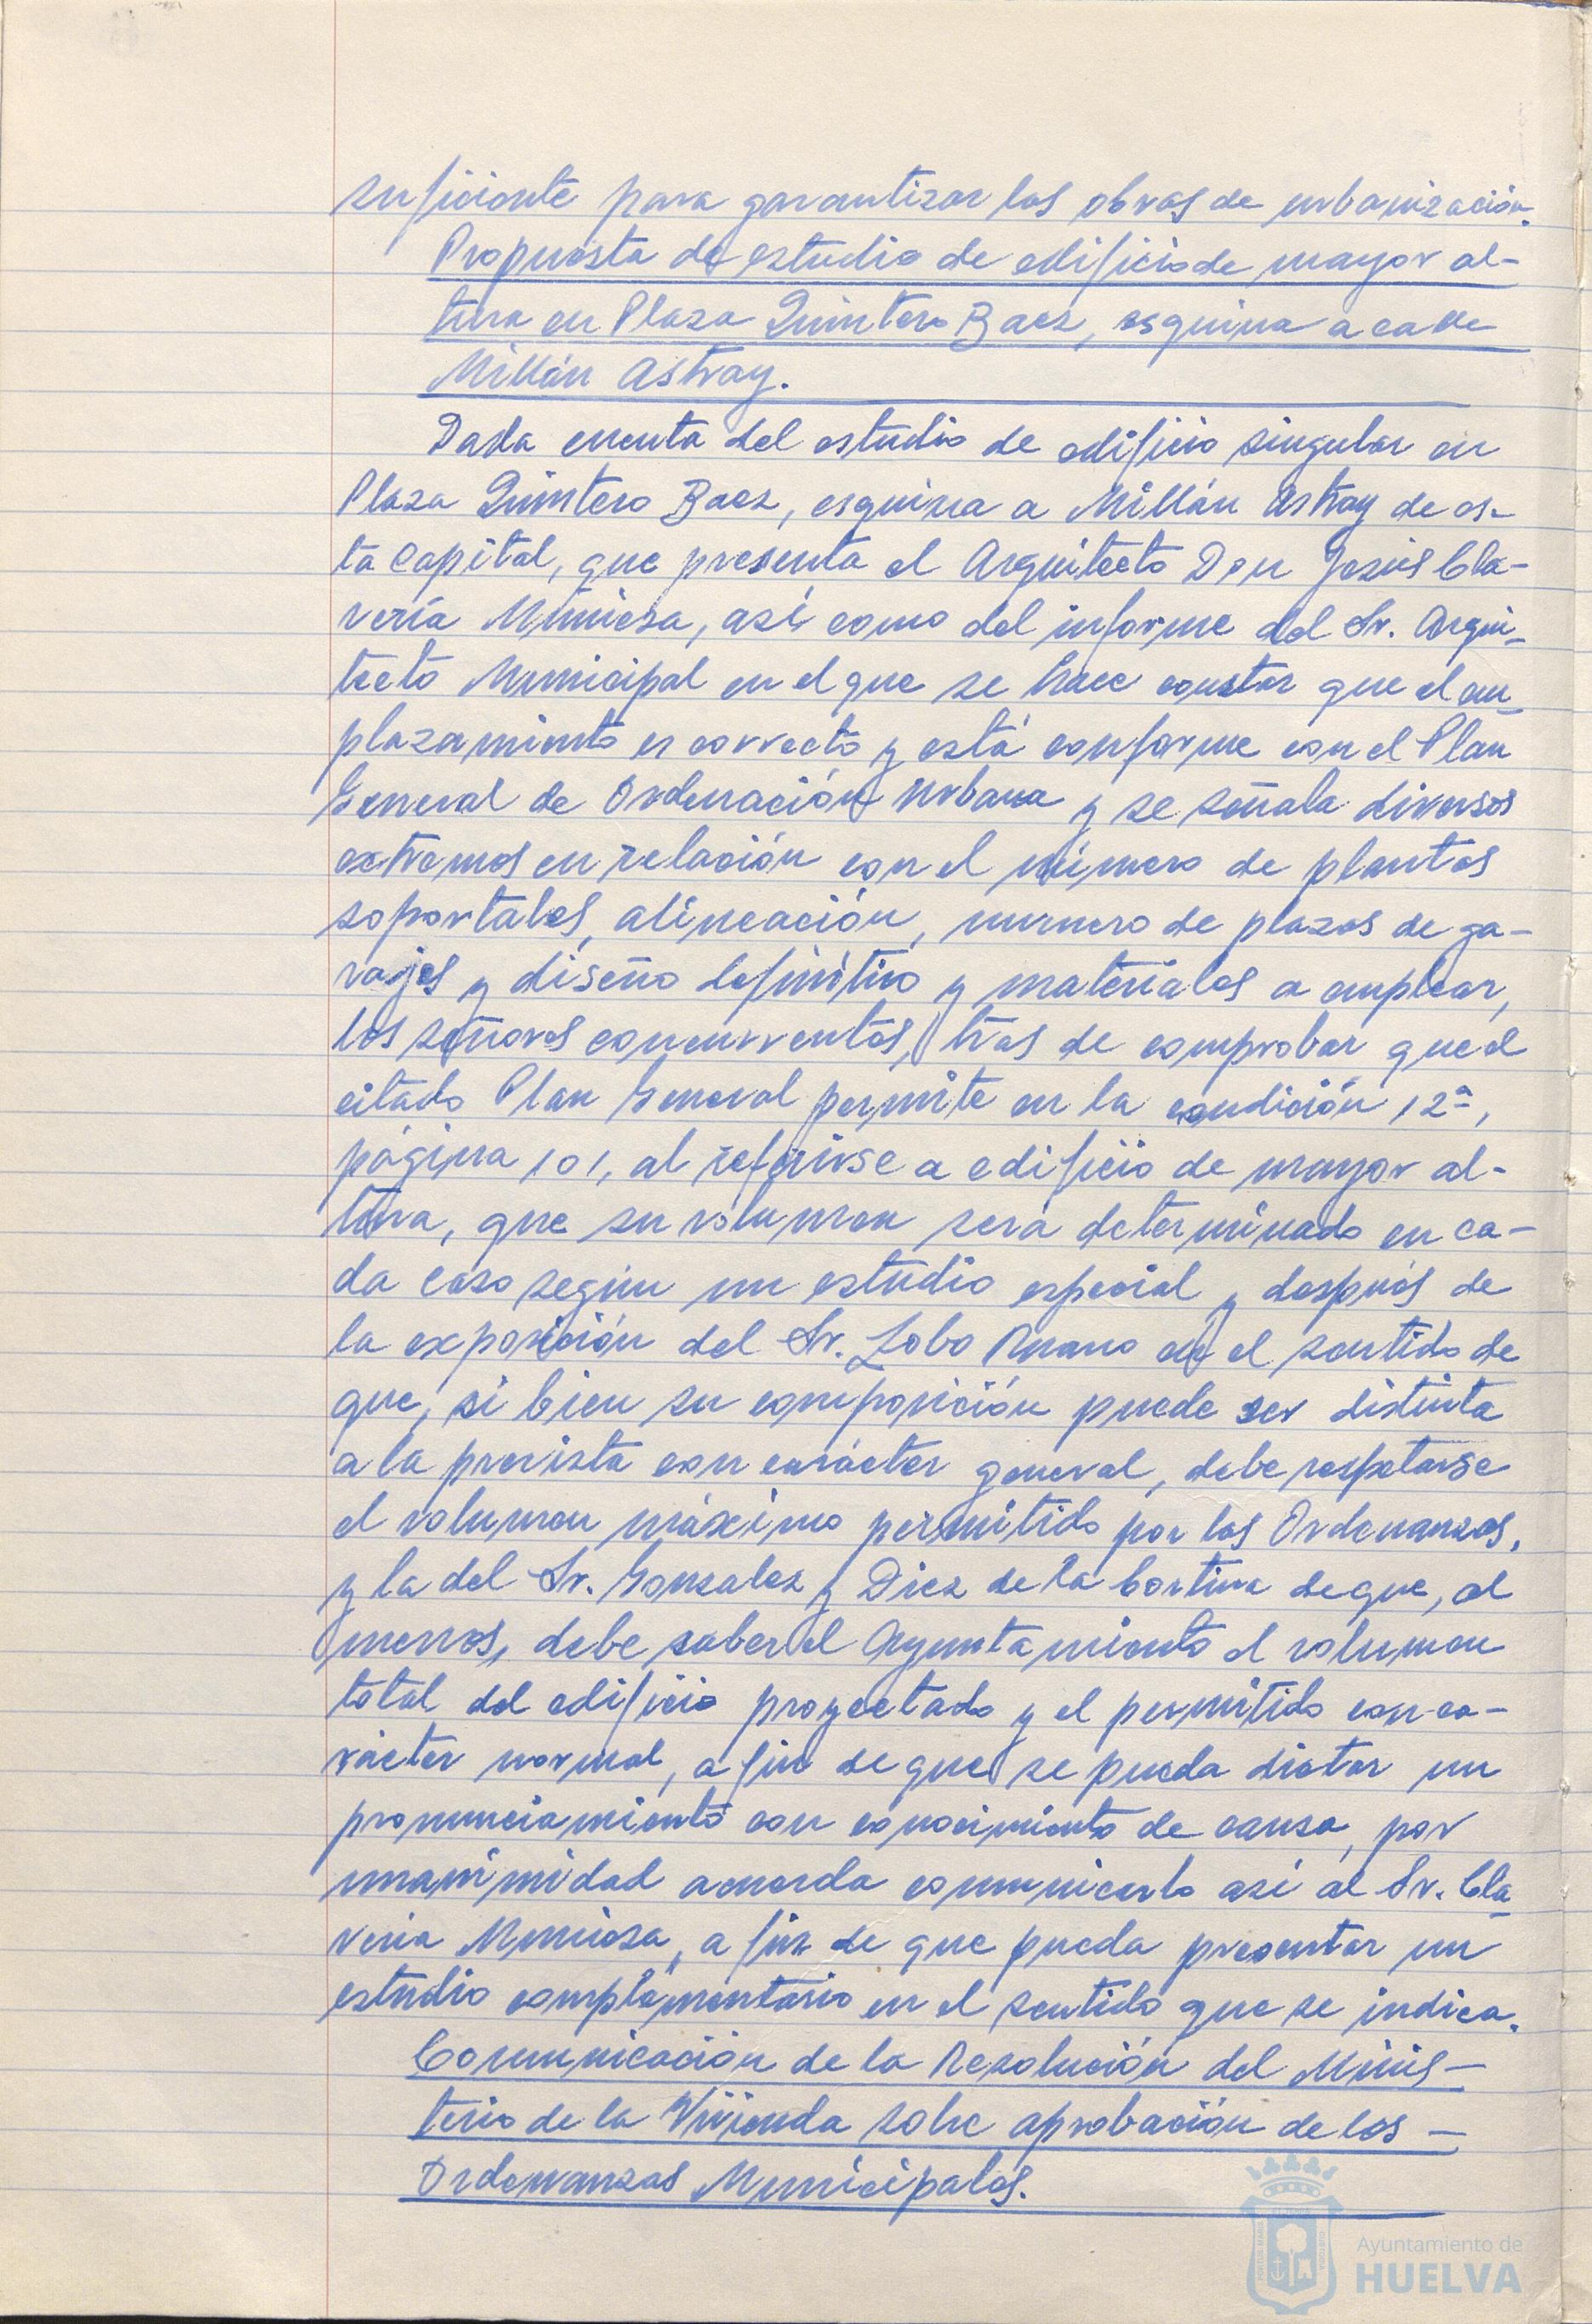 suficiente para garantizar las obras de urbanización.
Propuesta de estudio de edificio de mayor al-
tura en Plaza Quintero Baez, esquina a calle
Millán Astray.
Dada cuenta del estudio de edificio singular en
Plaza Quintero Baez, esquina a Millán Astray de es-
ta Capital, que presenta el Arquitecto Don Jesús Cla-
vería Muniesa, así como del informe del Sr. Arqui-
tecto Municipal en el que se hace constar que el em-
plazamiento es correcto y está conforme con el Plan
General de Ordenación Urbana y se señala diversos
extremos en relación con el número de plantas
soportales, alineación, numero de plazas de ga-
rajes y diseño definitivo y materiales a emplear,
los señores concurrentes, tras de comprobar que el
citado Plan General permite en la condición 12ª,
página 101, al referirse a edificio de mayor al-
tura, que su volumen será determinado en ca-
da caso según un estudio especial y después de
la exposición del Sr. Lobo en el sentido de
que, si bien su composición puede ser distinta
a la prevista con carácter general, debe respetarse
el volumen máximo permitido por las Ordenanzas,
y la del Sr. Gonzalez y Diez de la Cortina de que, al
menos, debe saber el Ayuntamiento el volumen
total del edificio proyectado y el permitido con ca-
rácter normal, a fin de que se pueda dictar un
pronunciamiento con conocimiento de causa, por
unanimidad acuerda comunicarlo así al Sr. Cla-
veria Muniesa, a fin de que pueda presentar un
estudio complementario en el sentido que se indica.
Comunicación de la Resolución del Minis-
terio de la Vivienda sobre aprobación de las
Ordenanzas Municipales.
Ayuntamiento de
HUELVA